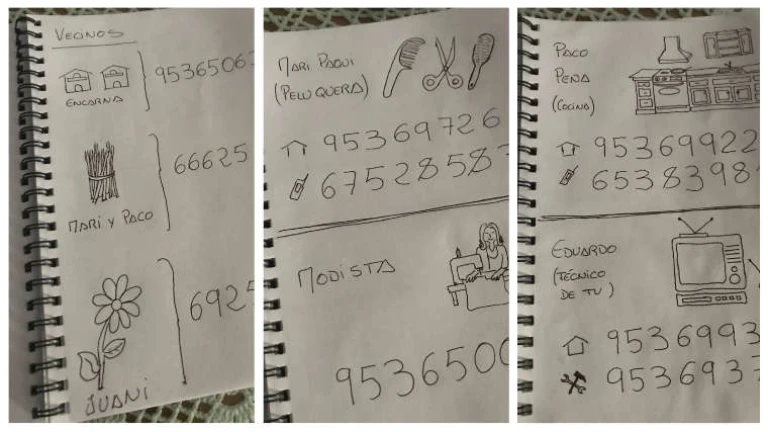 VECINOS
ENCARNA
95365063
MARI Y PACO
66625
JUANI
6925
MARI PAQUI
(PELUQUERA)
95369726
67528583
MODISTA
9536500
PACO
PEÑA
(COCINA)
95369922
65383981
EDUARDO
(TÉCNICO
DE TV)
9536993
9536937